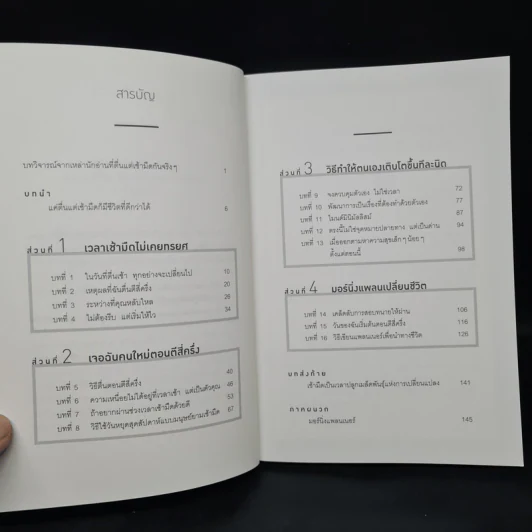 สารบัญ
บทวิจารณ์จากเหล่านักอ่านที่ตื่นแต่เช้ามืดกันจริงๆ 1
บทนำ
แค่ตื่นแต่เช้ามืดก็มีชีวิตที่ดีกว่าได้ 6
ส่วนที่ 1 เวลาเช้ามืดไม่เคยทรยศ
บทที่ 1 ในวันที่ตื่นเช้า ทุกอย่างจะเปลี่ยนไป 10
บทที่ 2 เหตุผลที่ฉันตื่นตีสี่ครึ่ง 20
บทที่ 3 ระหว่างที่คุณหลับใหล 28
บทที่ 4 ไม่ต้องรีบ แค่เริ่มให้ไว 34
ส่วนที่ 2 เจอฉันคนใหม่ตอนตีสี่ครึ่ง
บทที่ 5 วิธีตื่นตอนตีสี่ครึ่ง 40
บทที่ 6 ความเหนื่อยไม่ได้อยู่ที่เวลาเช้า แต่เป็นตัวคุณ 46
บทที่ 7 ถ้าอยากผ่านช่วงเวลาเช้ามืดด้วยดี 53
บทที่ 8 วิธีใช้วันหยุดสุดสัปดาห์แบบมนุษย์ยามเช้ามืด 67
ส่วนที่ 3 วิธีทำให้ตนเองเติบโตขึ้นทีละนิด
บทที่ 9 จงควบคุมตัวเอง ไม่ใช่เวลา 72
บทที่ 10 พัฒนาการเป็นเรื่องที่ต้องทำด้วยตัวเอง 77
บทที่ 11 ไมนด์มินิมัลลิสม์ 87
บทที่ 12 ตรงนี้ไม่ใช่จุดหมายปลายทาง แค่เป็นด่าน 94
บทที่ 13 เมื่อออกตามหาความสุขเล็กๆ น้อยๆ
ตั้งแต่ตอนนี้ 98
ส่วนที่ 4 มอร์นิ่งแพลนเปลี่ยนชีวิต
บทที่ 14 เคล็ดลับการสอบทนายให้ผ่าน 106
บทที่ 15 วันของฉันเริ่มต้นตอนตีสี่ครึ่ง 116
บทที่ 16 วิธีเขียนแพลนเนอร์เพื่อนำทางชีวิต 126
บทส่งท้าย
เช้ามืดเป็นเวลาปลูกเมล็ดพันธุ์แห่งการเปลี่ยนแปลง 141
ภาคผนวก
มอร์นิ่งแพลนเนอร์ 145